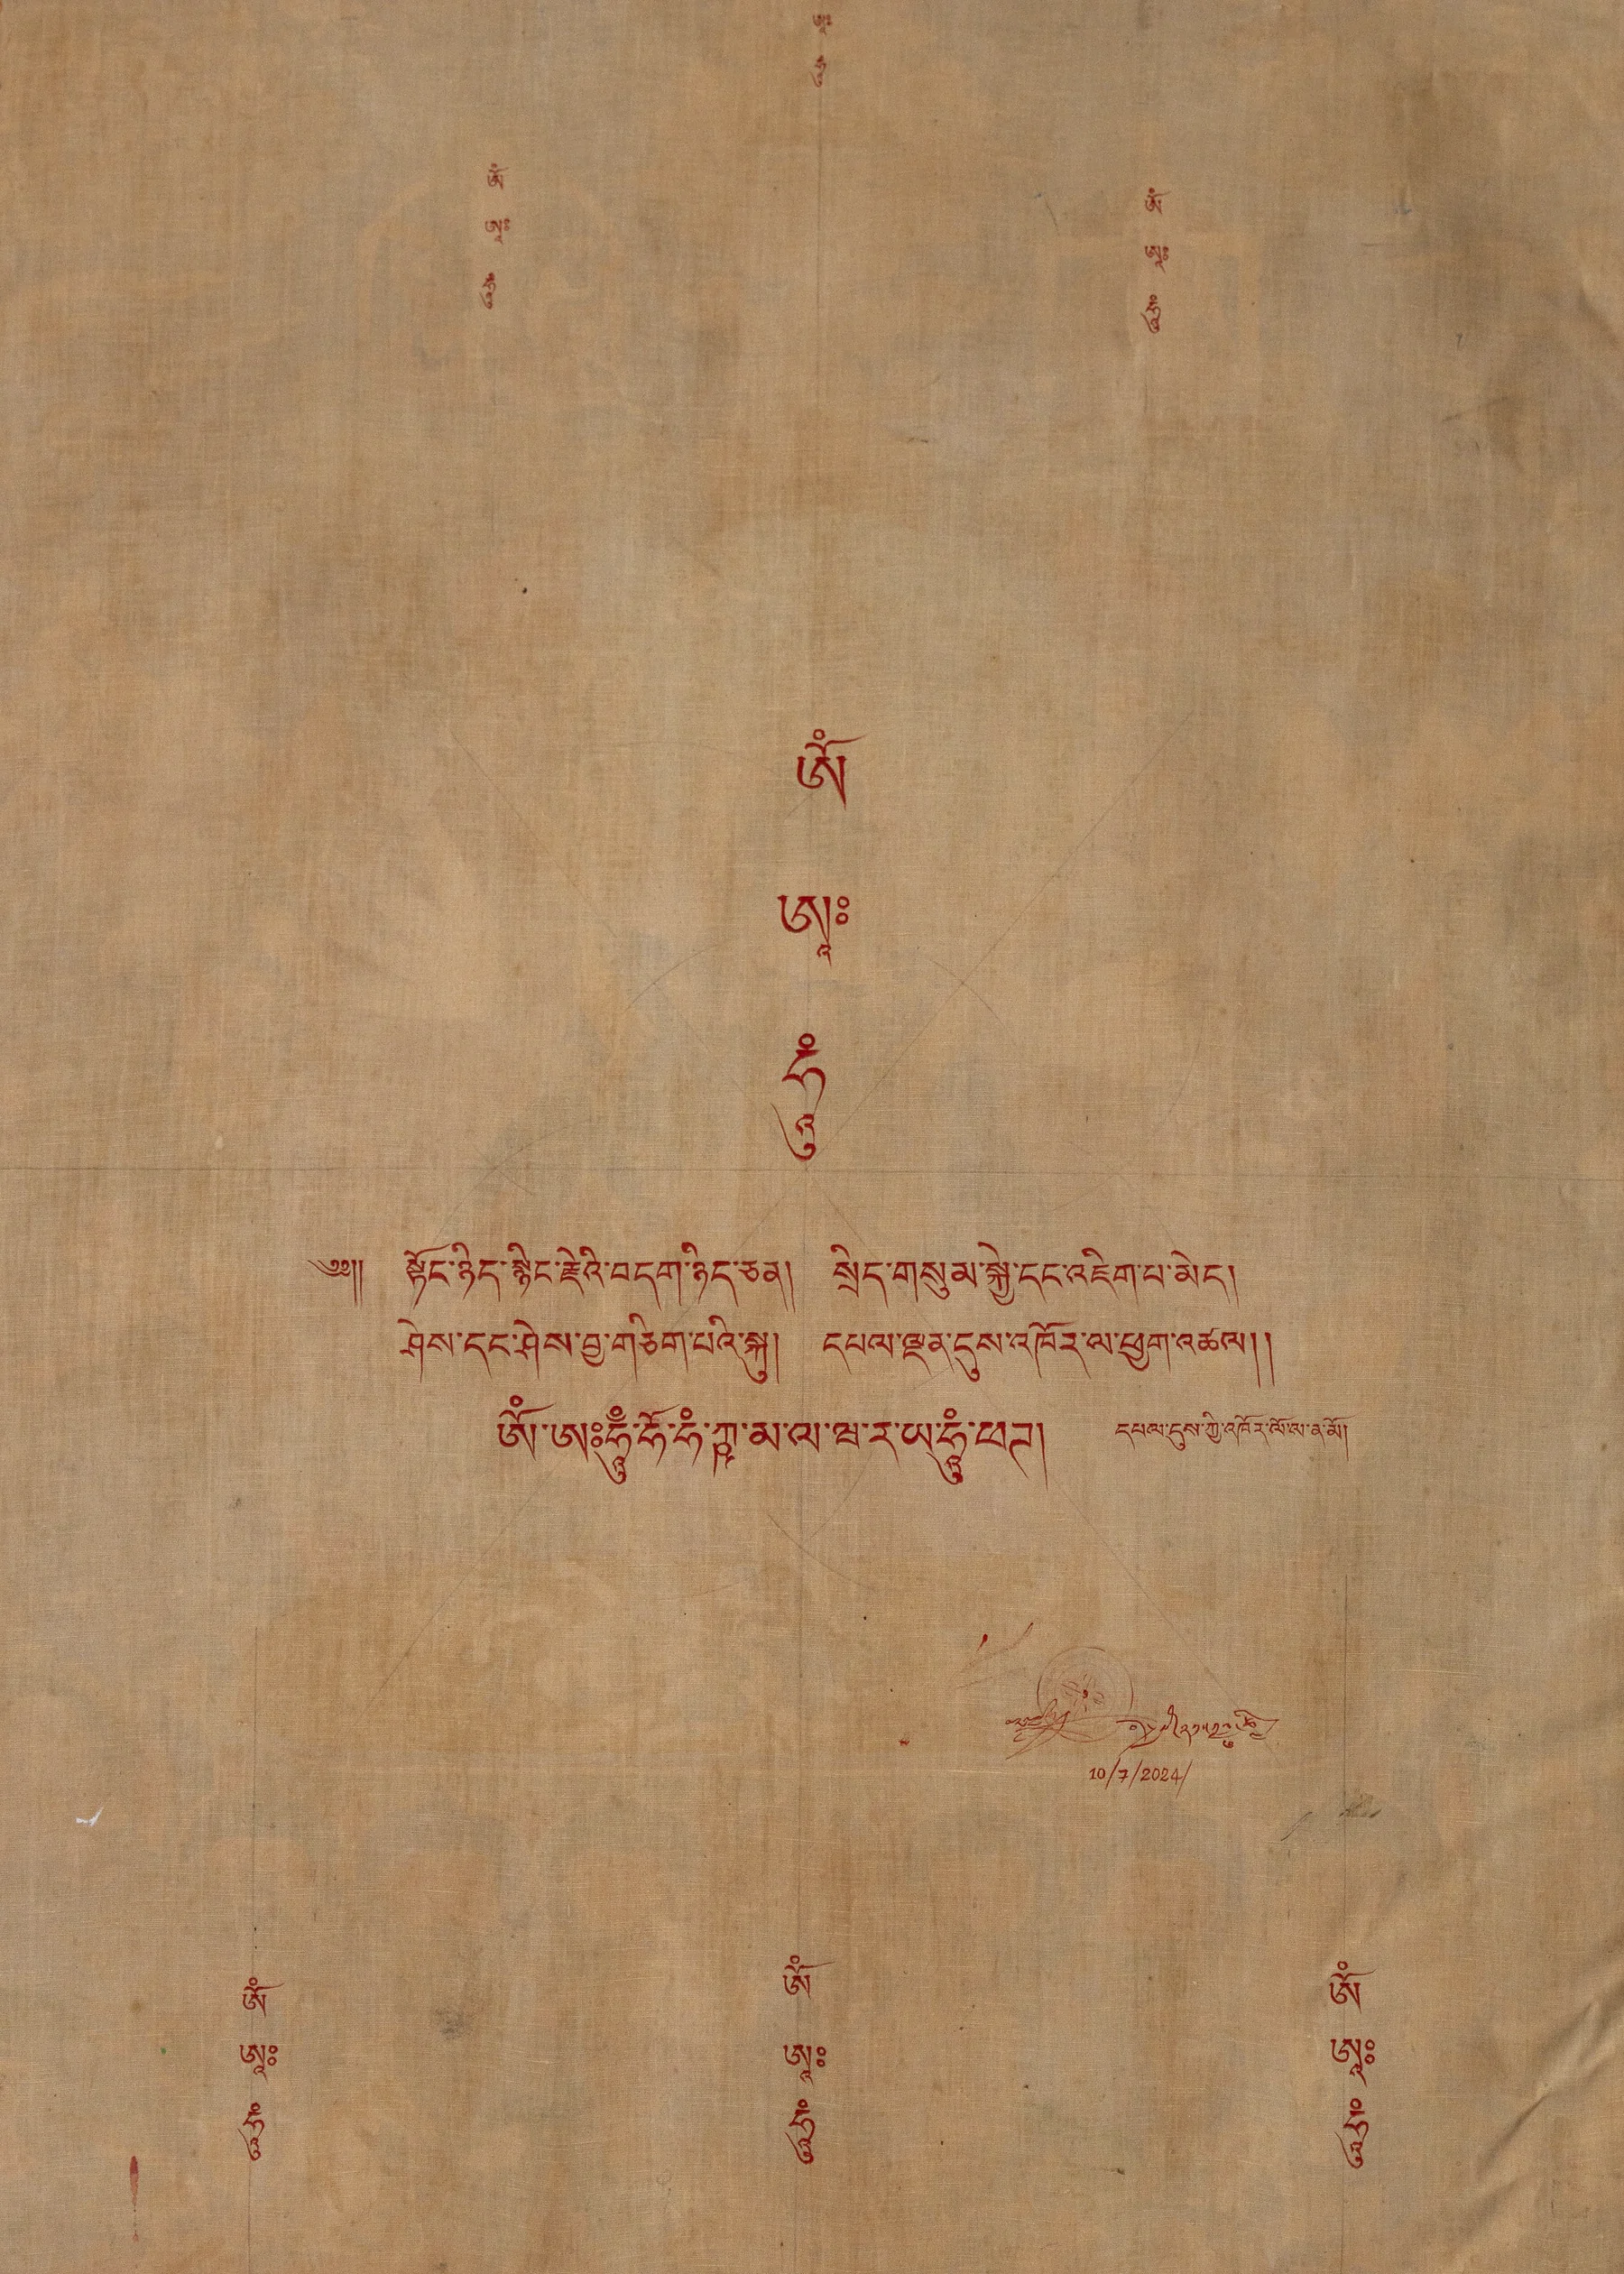 ཨཱཿ
ཧཱུྃ
ཨོཾ
ཨཱཿ
ཧཱུྃ
ཨོཾ
ཨཱཿ
ཧཱུྃ
ཨོཾ
ཨཱཿ
ཧཱུྃ
༄༅།། སྟོང་ཉིད་སྙིང་རྗེའི་བདག་ཉིད་ཅན། སྲིད་གསུམ་སྐྱེ་དང་འཇིག་པ་མེད།
ཤེས་དང་ཤེས་བྱ་གཅིག་པའི་སྐུ། དཔལ་ལྡན་དུས་འཁོར་ལ་ཕྱག་འཚལ།།
ཨོཾ་ཨཿཧཱུྃ་ཧོ་ཧཾ་ཀྵ་མ་ལ་ཝ་ར་ཡ་ཧཱུྃ་ཕཊ། དཔལ་དུས་ཀྱི་འཁོར་ལོ་ལ་ན་མོ།
10/7/2024/
ཨོཾ
ཨཱཿ
ཧཱུྃ
ཨོཾ
ཨཱཿ
ཧཱུྃ
ཨོཾ
ཨཱཿ
ཧཱུྃ